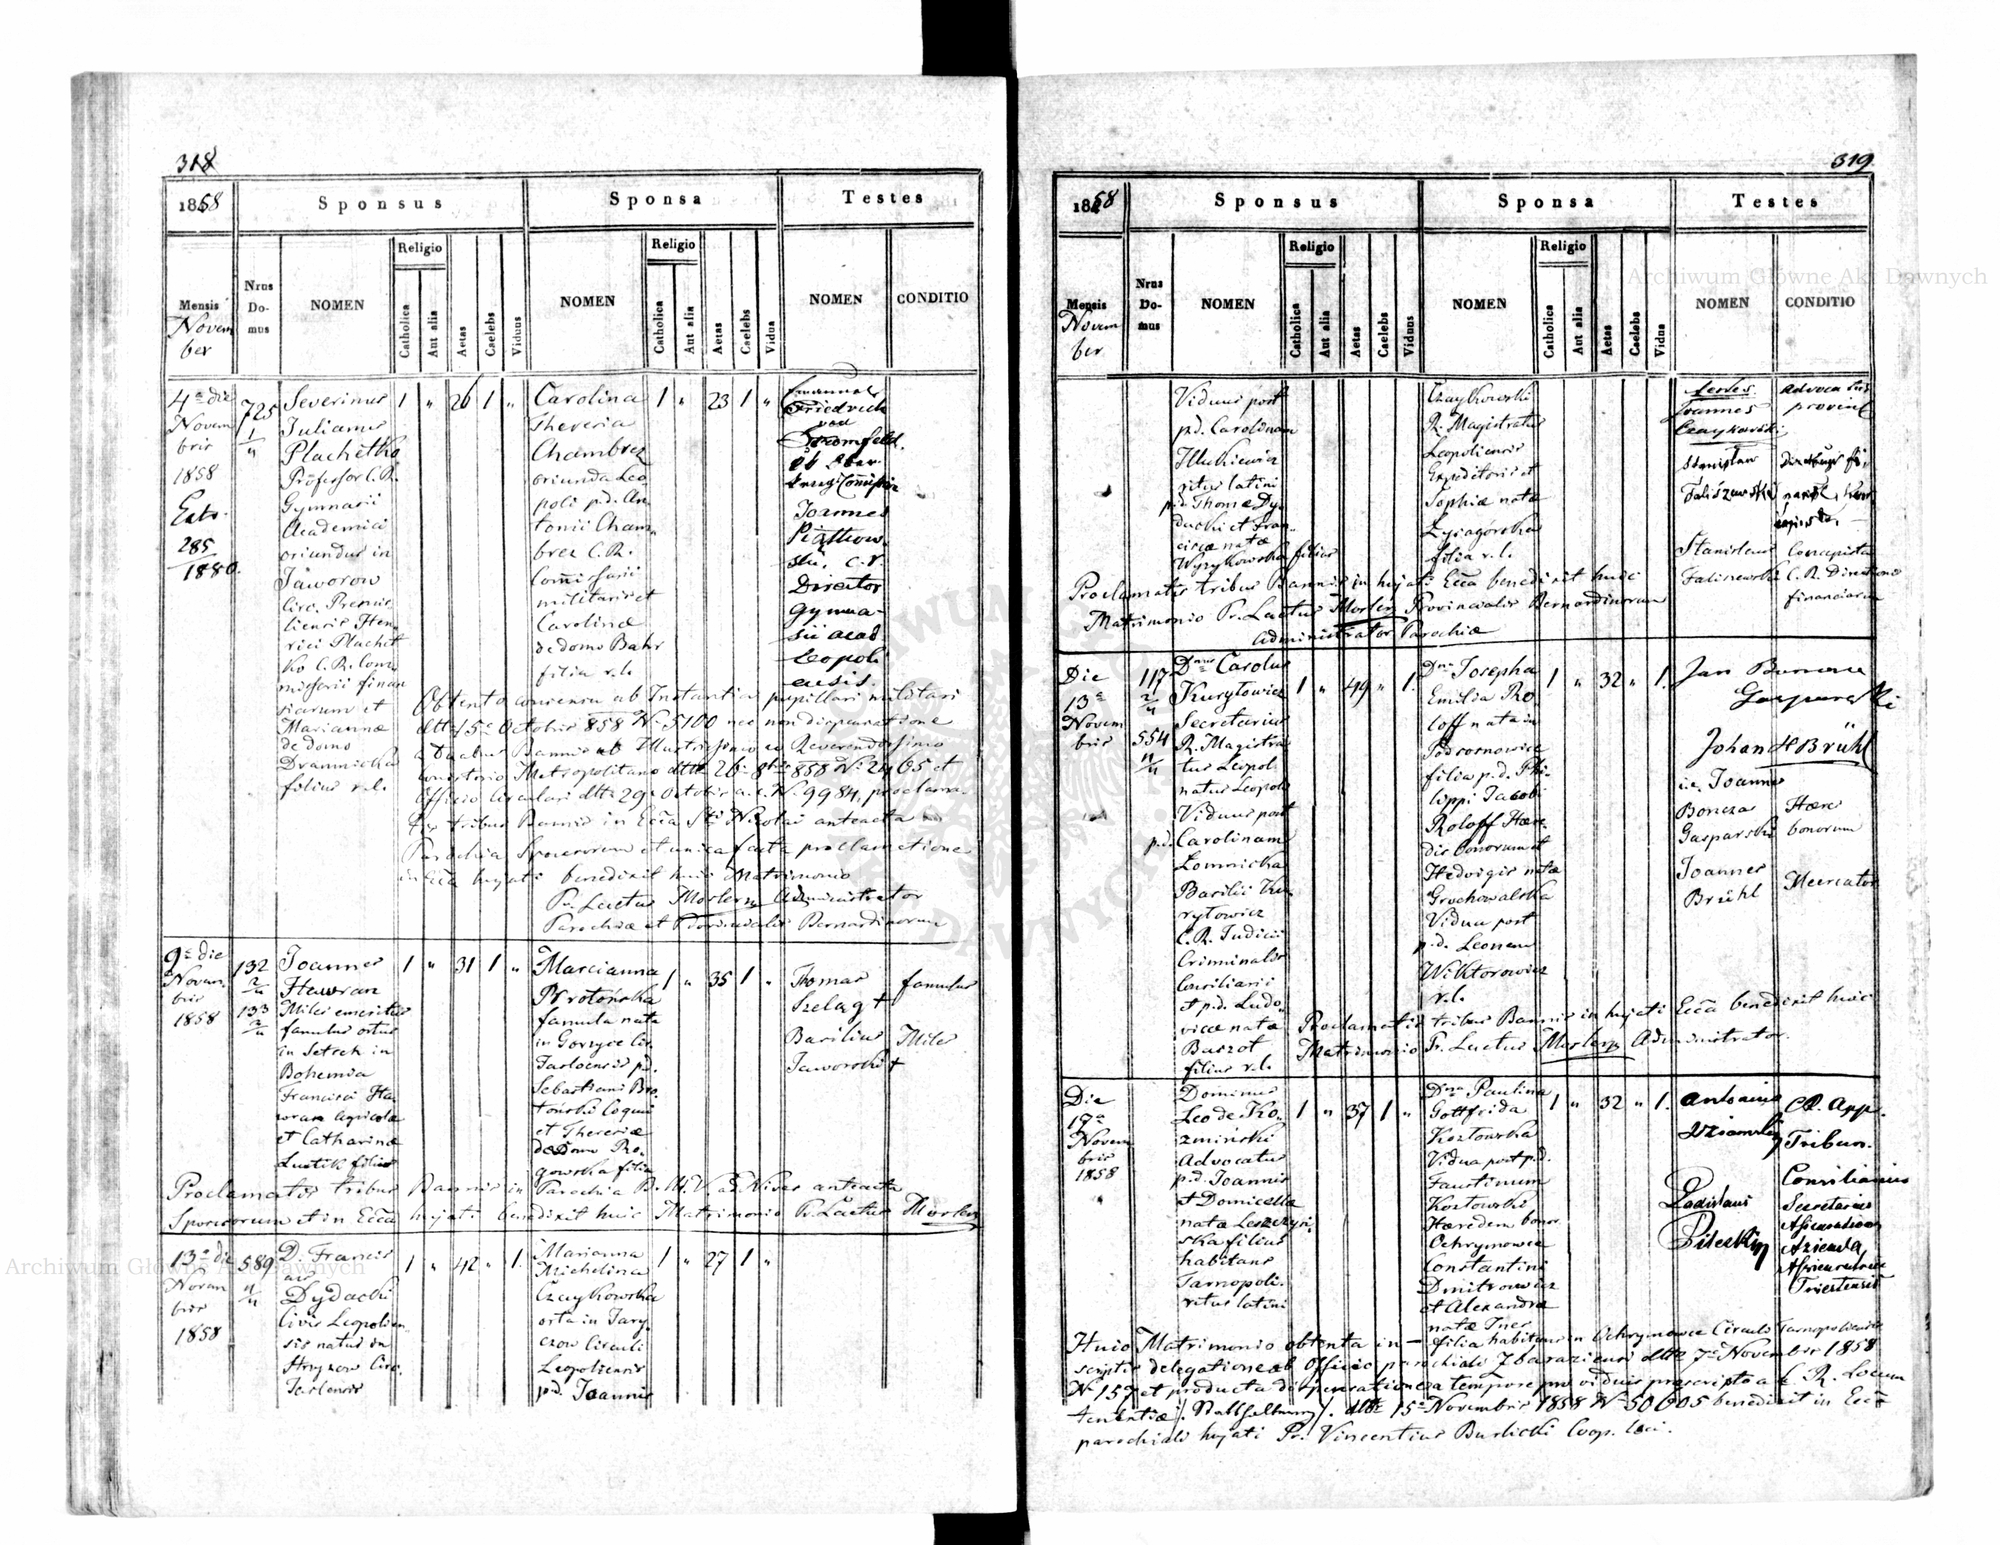 318
1858
Sponsus
Sponsa
Testes
Mensis
Novem
ber
Nrus
Do-
mus
NOMEN
Religio
Catholica
Aut alia
Aetas
Caelebs
Viduus
NOMEN
Religio
Catholica
Aut alia
Aetas
Caelebs
Vidua
NOMEN
CONDITIO
4a die
Novem
bris
1858
285
1880.
725
1
4
Severinus
Julianus
Plachetko
Professor C.R.
Gymnasii
Academici
oriundus in
Jaworow
Circ. Premis
liensis Hen-
rici Plachet
ko C.R. Com
missarii finan
siarum et
Mariannæ
de domo
filius r.l.
1 " 26 1 "
Carolina
Theresia
Chambrez
oriunda Leo
poli p.d. An
tonii Cham-
brez C.R.
Comissarii
militaris et
Carolinæ
de domo Bahr
filia r.l.
1 " 23 1 "
Emanuel
Friedrich
von
Joannes
Piątkow-
ski, C.r.
Director
Gymna-
sii acad.
Leopoli
ensis.
Obtento consensu ab Instantia pupillari militari
ddto 15a Octobris 858 No 5100 nec non dispensatione
a duabus Bannis ab Illustrissimo ac Reverendissimo
Consistorio Metropolitano ddto 26a 8bris 858 No 2405 et
Officio Circulari ddto 29a Octobris a.c. No 9984, proclama-
tis tribus Bannis in Ecca Sti Nicolai anteacta
Parochia Sponsorum et unica facta proclamatione
in Ecca hujati benedixit huic Matrimonio
Pr. Laetus Morlerz Administrator
Parochiæ et Provincialis Bernardinorum
9a die
Novem
bris
1858
132
2/4
133
2/4
Joannes
Hawran
Miles emeritus
famulus ortus
in Setsch in
Bohemia
Francisci Ha
wran agricolæ
et Catharinæ
Lustik filius
1 " 31 1 "
Marcianna
Protońska
famula nata
in Gorzyce Cir.
Jasloensis p.d.
Sebastiani Bro
tonski Coqui
et Theresiæ
de Domo Ro-
gowska filia
1 " 35 1 "
Thomas
Szeląg +
famulus
Basilius
Jaworski +
Miles
Proclamatis tribus Bannis in Parochia B.M.V. ad Nives anteacta
Sponsorum et in Ecca hujati benedixit huic Matrimonio Pr. Laetus Morlerz
13a die
Novem
bris
1858
589
4/4
D. Francis
cus
Dydacki
Civis Leopolien
sis natus in
Circ.
Jaslensis
1 " 42 " 1.
Marianna
Michelina
Czaykowska
orta in Jary
czow Circuli
Leopoliensis
p.d. Joannis
1 " 27 1 "
319
1858
Sponsus
Sponsa
Testes
Mensis
Novem
ber
Nrus
Do-
mus
NOMEN
Religio
Catholica
Aut alia
Aetas
Caelebs
Viduus
NOMEN
Religio
Catholica
Aut alia
Aetas
Caelebs
Vidua
NOMEN
CONDITIO
Viduus post
p.d. Carolinam
Illukiewicz
ritus latini
p.d. Thomæ Dy-
dacki et Fran-
ciscæ natæ
Wyzykowska filius
Czaykowski
R. Magistratus
Leopoliensis
Expeditoris et
Sophiæ natæ
Zyziagórska
filia r.l.
Testes.
Joannes
Czaykowski
advocatus
provincl
Stanisław
Stanislaus
Concipista
C.R. Directionis
financiarum
Proclamatis tribus Bannis in hujati Ecca benedixit huic
Matrimonio Pr. Laetus Morlerz Provincialis Bernardinorum
Administrator Parochiæ
Die
13a
Novem
bris
117
2/4
554
4/4
Dnus Carolus
Kurytowicz
Secretarius
R. Magistra
tus Leopol.
natus Leopoli
Viduus post
p.d. Carolinam
Łomnicka
Basilii Ku
rytowicz
C.R. Judicii
Criminalis
Consiliarii
et p.d. Ludo
vicæ natæ
Baszot
filius r.l.
1 " 49 " 1.
Dna Josepha
Emilia Ro
loff nata in
Podsosnowice
filia p.d. Phi-
lippi Jacobi
Roloff Hære-
dis bonorum et
Hedvigis natæ
Grochowalska
Vidua post
p.d. Leonem
Wiktorowicz
r.l.
1 " 32 " 1.
Jan Boncza
Gasparski
Johan H Brühl
i.e. Joannes
Boncza
Gasparski
Hæres
bonorum
Joannes
Brühl
Mercator
Proclamatis tribus Bannis in hujati Ecca benedixit huic
Matrimonio Pr. Laetus Morlerz Administrator.
Die
17a
Novem
bris
1858
Dominus
Leo de Ko-
zminski
Advocatus
p.d. Joannis
et Domicellæ
natæ Leszczyń-
ska filius
habitans
Tarnopoli.
ritus latini
1 " 37 1 "
Dna Paulina
Gottfrida
Kozłowska
Vidua post p.d.
Faustinum
Kozłowski
Hæredem bonor.
Ochrymowce
Constantini
Dmitrowicz
et Alexandræ
natæ Ines
1 " 32 " 1.
Antonius
CR. App.
Tribun.
Consiliarius
Ladislaus
Pileski
Secretarius
Azienda
Triestensis
Huic Matrimonio obtenta in- filia habitans in Ochrymowce Circuli Tarnopoliensis
scriptis delegatione ab Officio parochiali Zbarazensi ddto 7a Novembris 1858
No 157 et producta dispensatione a tempore pro viduis præscripto a C.R. Locum
tenentia /: Statthalterey :/ ddto 15a Novembris 1858 No 50605 benedixit in Ecca
parochiali hujati Pr. Vincentius Burlicki Coop. loci.
Archiwum Główne Akt Dawnych
Archiwum Główne Akt Dawnych